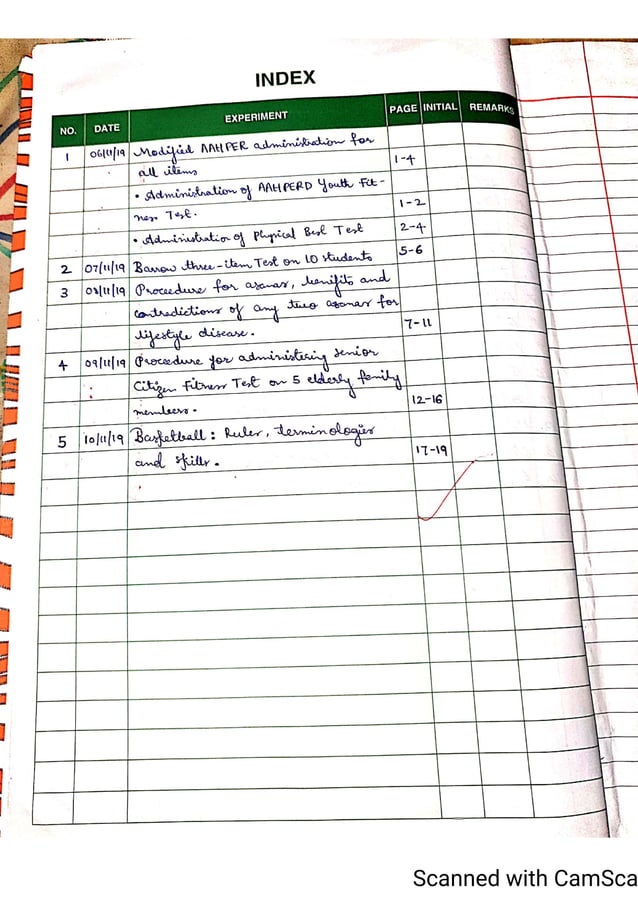 INDEX
NO. DATE EXPERIMENT PAGE INITIAL REMARKS
1 06/11/19 Modified AAHPER administration for
all items 1-4
• Administration of AAHPERD Youth Fit-
ness Test. 1-2
• Administration of Physical Best Test 2-4
2 07/11/19 Barrow three-item Test on 10 students 5-6
3 08/11/19 Proceedure for asanas, benifits and
contradictions of any two asanas for
lifestyle disease. 7-11
4 09/11/19 Proceedure for administering Senior
Citizen Fitness Test on 5 elderly family
members. 12-16
5 10/11/19 Basketball : Rules, terminologies
and skills. 17-19
Scanned with CamSca